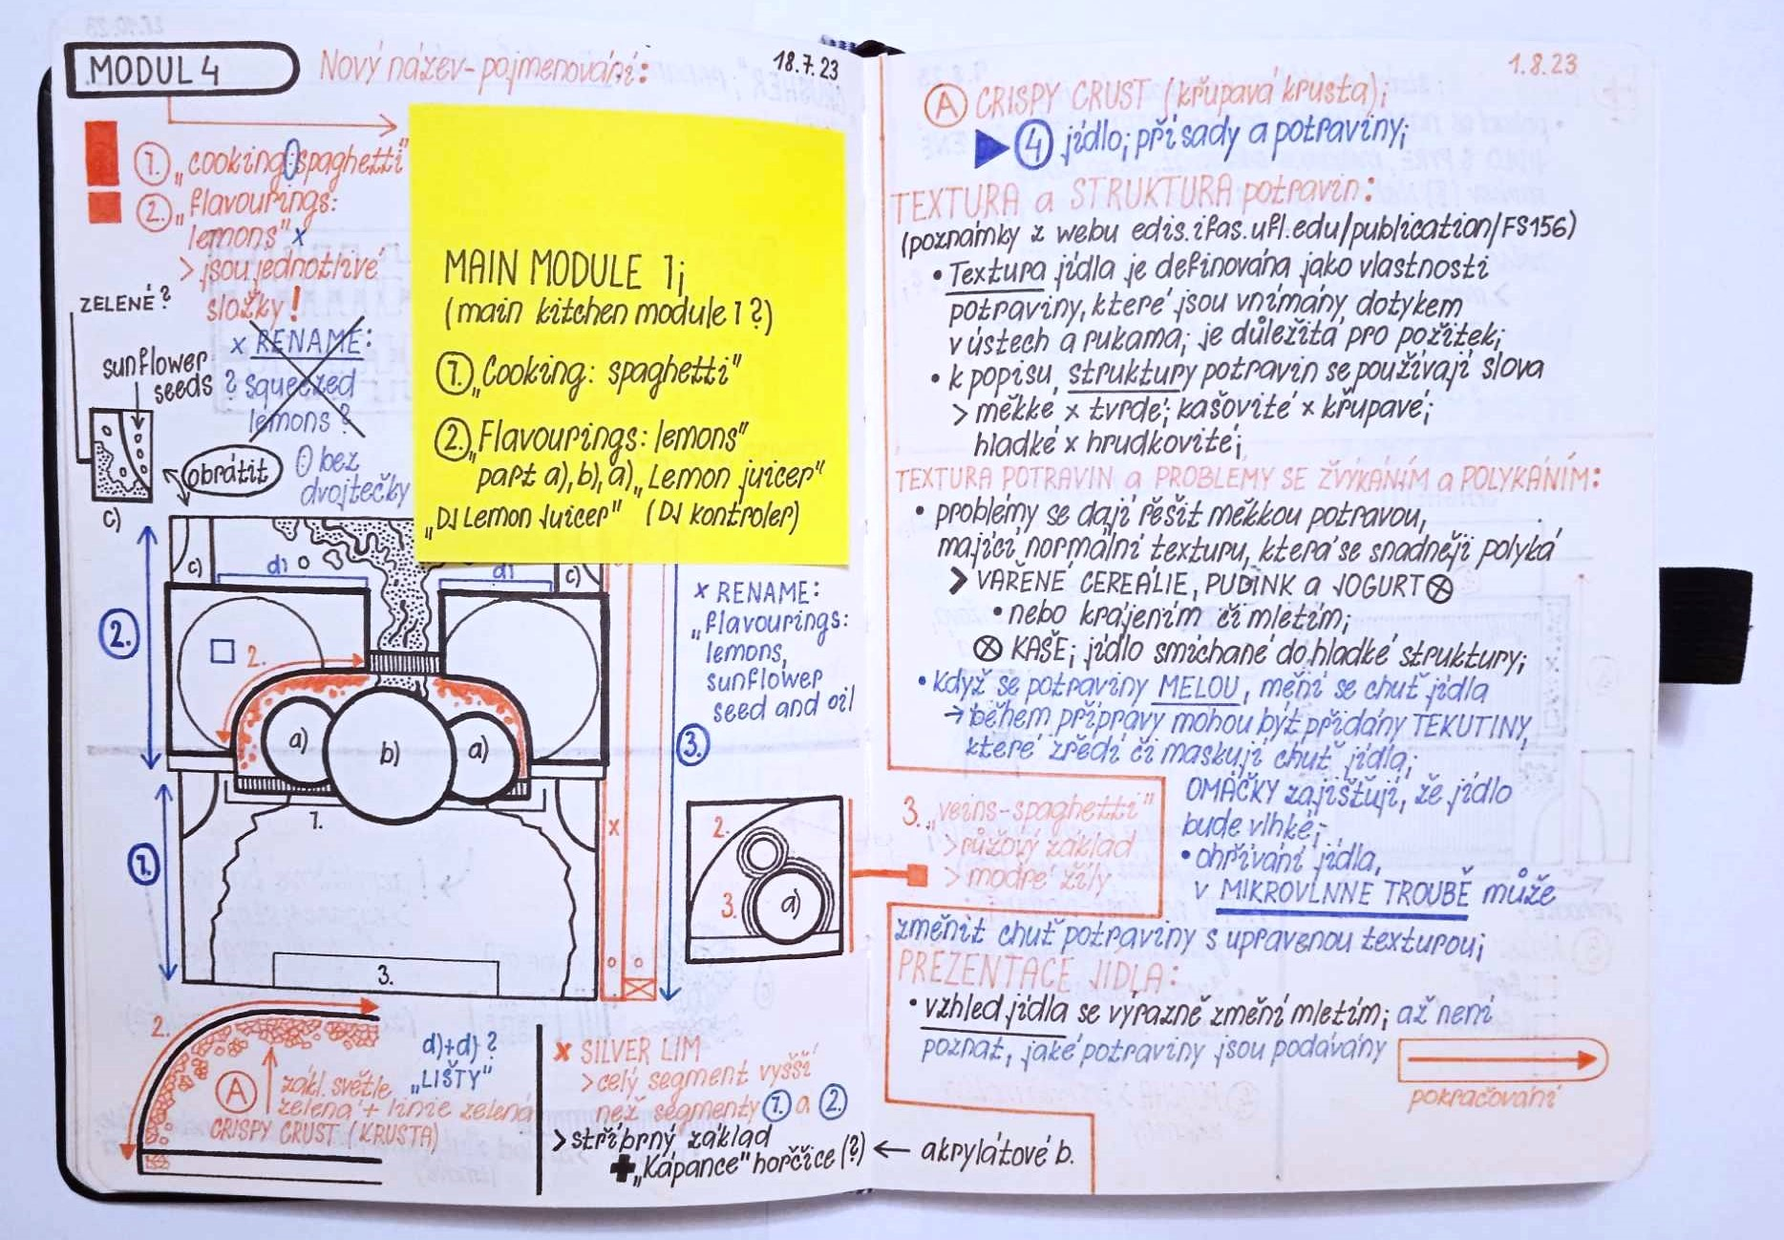 MODUL 4
Nový název - pojmenování:
18.7.23
1. „cooking spaghetti"
2. „flavourings:
lemons" x
> jsou jednotlivé
složky!
ZELENÉ?
x RENAME:
? squeezed
lemons?
sunflower
seeds
obrátit
bez
dvojtečky
c)
MAIN MODULE 1;
(main kitchen module 1?)
1. „Cooking: spaghetti"
2. „Flavourings: lemons"
part a), b), a) „Lemon juicer"
„DJ Lemon Juicer" (DJ kontroler)
c)
d)
d)
c)
2.
2.
a)
b)
a)
1.
1.
3.
x
3.
x RENAME:
„flavourings:
lemons,
sunflower
seed and oil
2.
3.
a)
2.
A
zákl. světle
zelená + linie zelená
CRISPY CRUST (KRUSTA)
d)+d)?
„LIŠTY"
x SILVER LIM
> celý segment vyšší
než segmenty 1. a 2.
> stříbrný základ
+ „Kápance" hořčice (?) ← akrylátové b.
1.8.23
A CRISPY CRUST (křupavá krusta);
4 jídlo; přísady a potraviny;
TEXTURA a STRUKTURA potravin:
(poznámky z webu edis.ifas.ufl.edu/publication/FS156)
• Textura jídla je definována jako vlastnosti
potraviny, které jsou vnímány dotykem
v ústech a rukama; je důležitá pro požitek;
• k popisu struktury potravin se používají slova
> měkké x tvrdé; kašovité x křupavé;
hladké x hrudkovité;
TEXTURA POTRAVIN a PROBLÉMY SE ŽVÝKÁNÍM a POLYKÁNÍM:
• problémy se dají řešit měkkou potravou,
mající normální texturu, která se snadněji polyká
> VAŘENÉ CEREÁLIE, PUDINK a JOGURT ⊗
• nebo krájením či mletím;
⊗ KAŠE; jídlo smíchané do hladké struktury;
• když se potraviny MELOU, mění se chuť jídla
→ během přípravy mohou být přidány TEKUTINY,
které zředí či maskují chuť jídla;
OMÁČKY zajišťují, že jídlo
bude vlhké;
• ohřívání jídla,
v MIKROVLNNÉ TROUBĚ může
změnit chuť potraviny s upravenou texturou;
3. „veins-spaghetti"
> růžový základ
> modré žíly
PREZENTACE JÍDLA:
• vzhled jídla se výrazně změní mletím; až není
poznat, jaké potraviny jsou podávány
pokračování